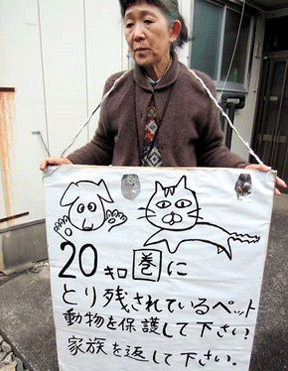 20キロ巻に
とり残されているペット
動物を保護して下さい!
家族を返して下さい.